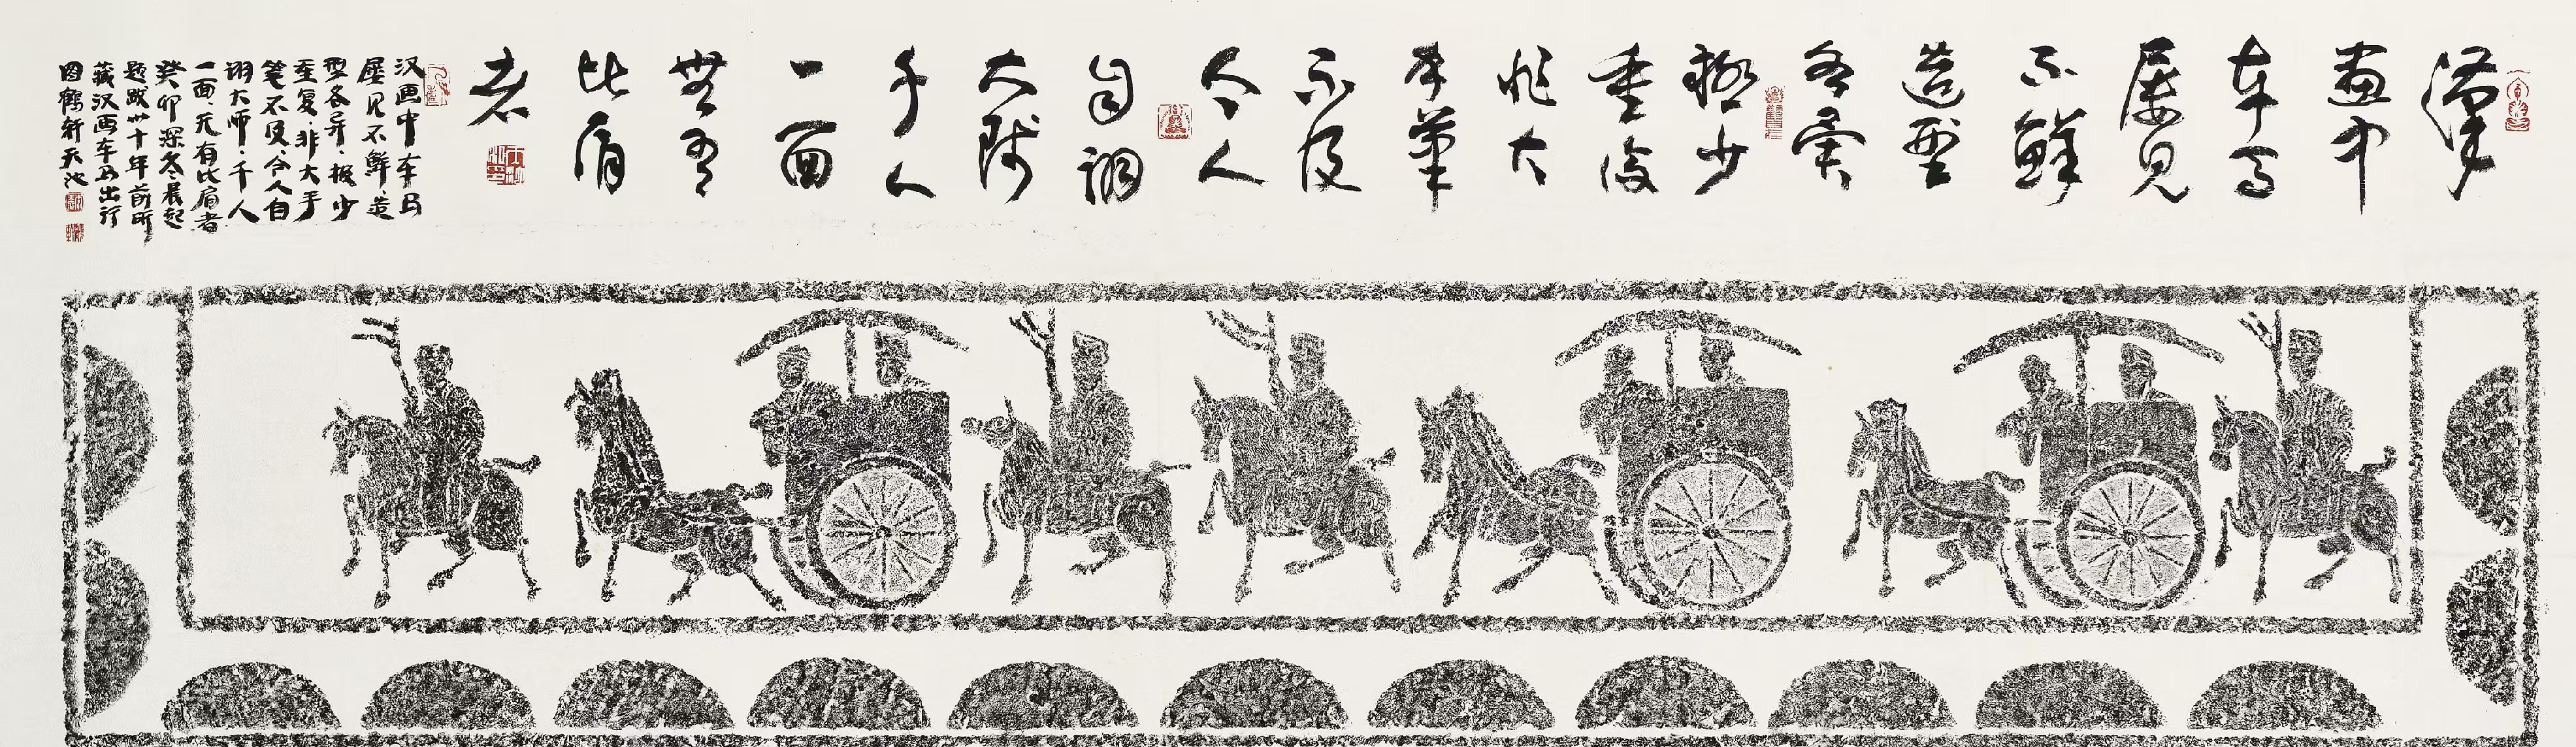 漢
畫中
車馬
屡見
不鮮
造型
各異
極少
重復
非大
手筆
不及
今人
自詡
大師
千人
一面
無有
比肩
者
汉画中车马
屡见不鲜造
型各异极少
重复非大手
笔不及今人自
诩大师千人
一面无有比肩者
癸卯深冬晨起
题跋卅十年前所
藏汉画车马出行
图鹤轩天池